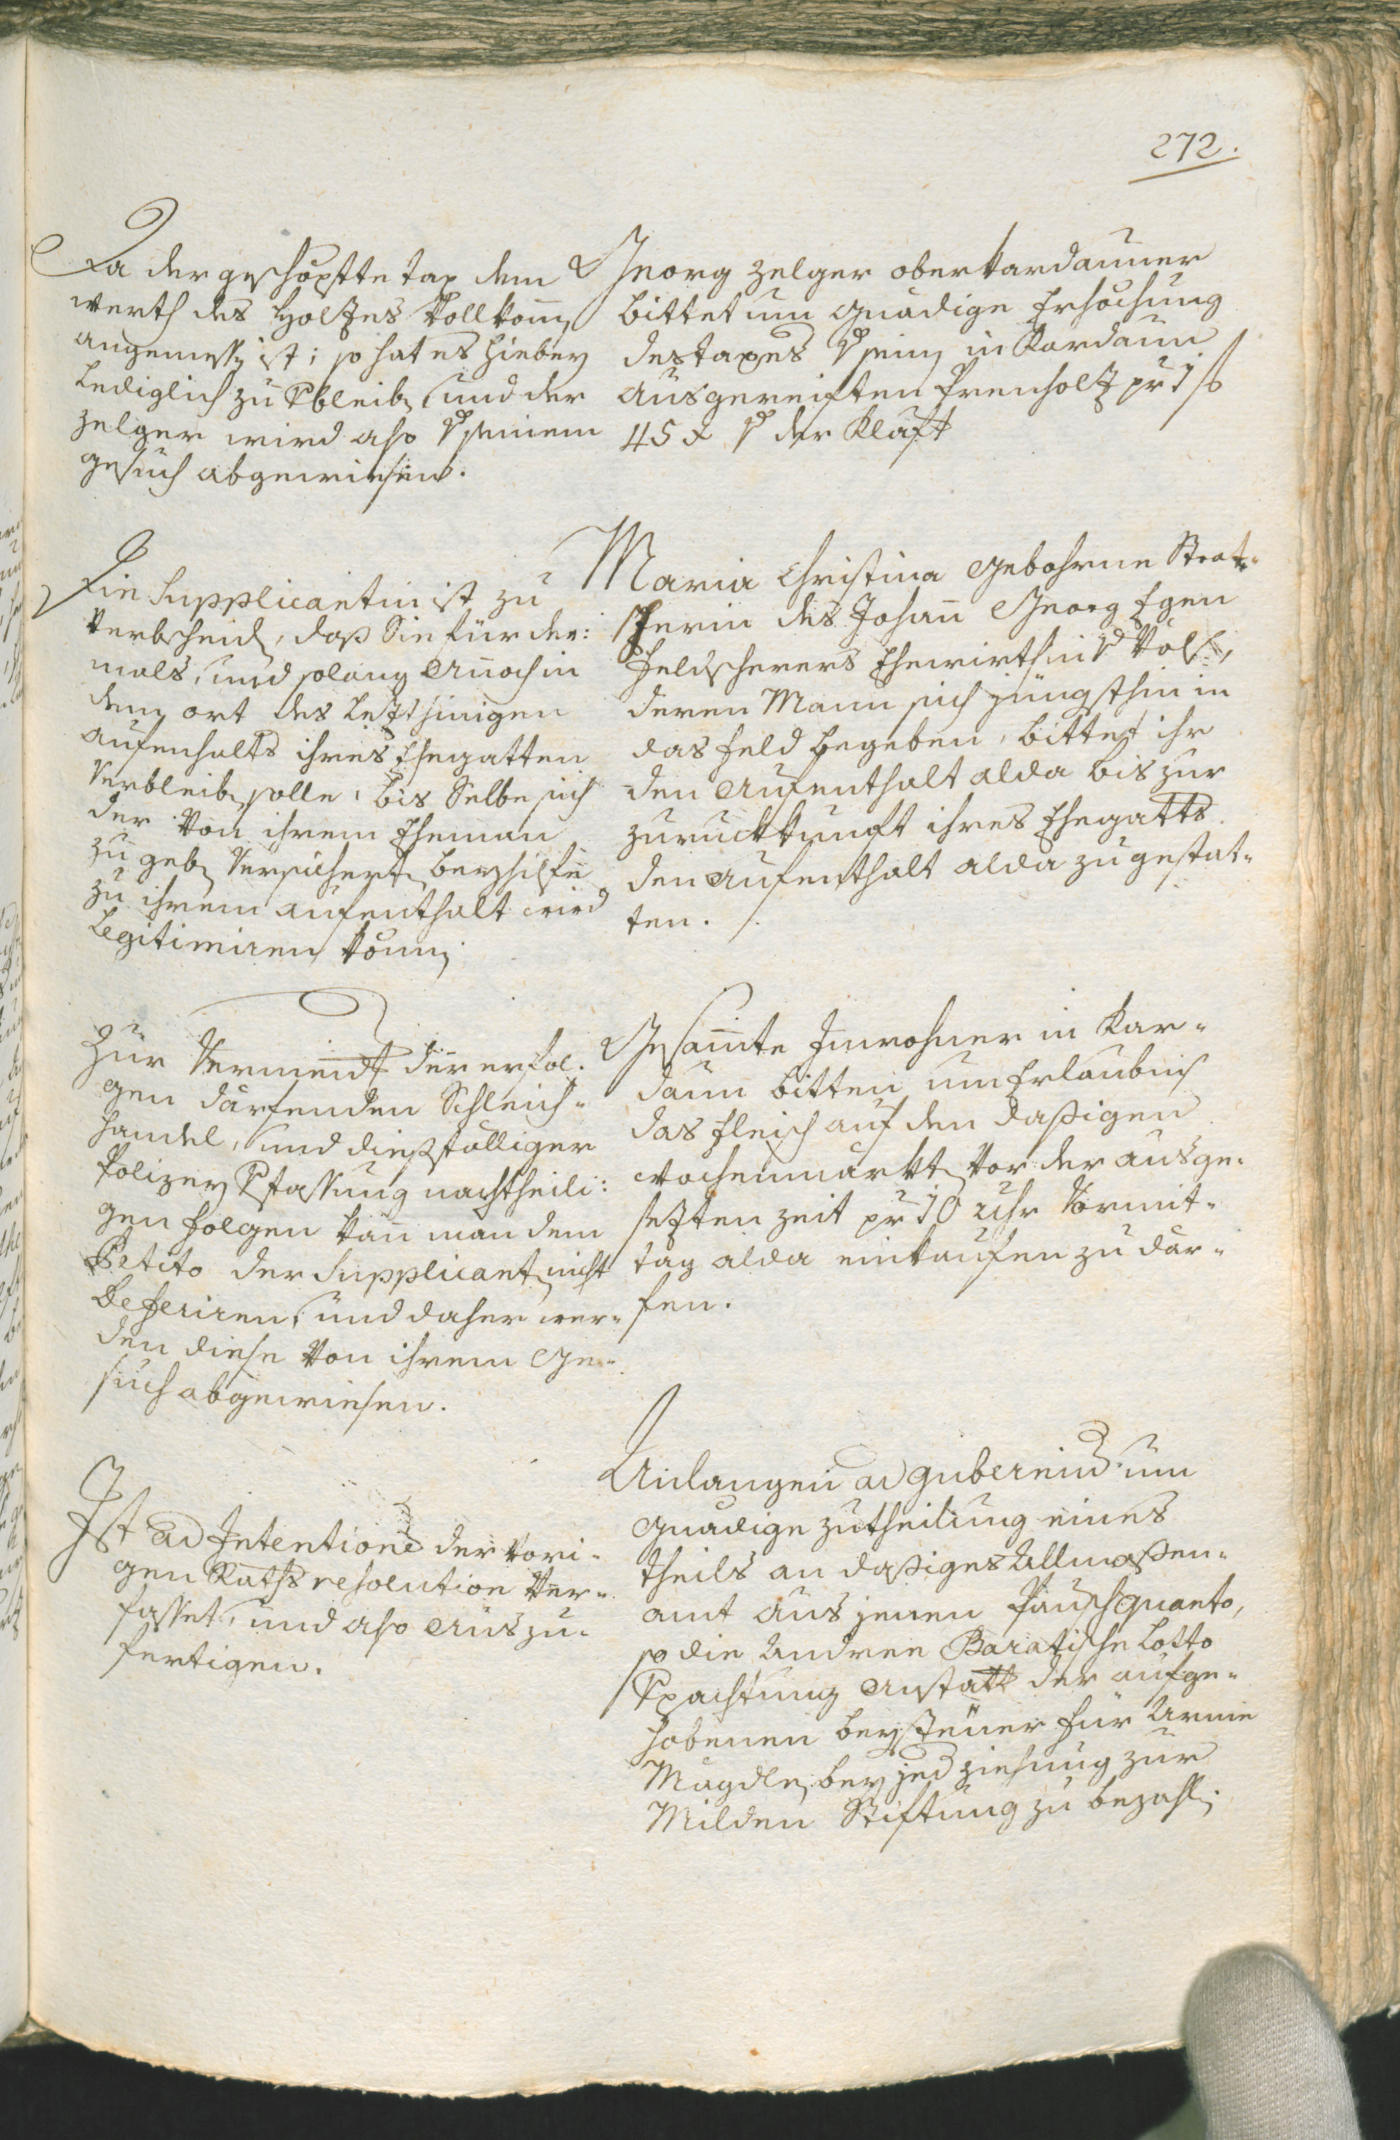 272.
Da der geschöpfte tax dem
werth des Holzes vollkom̄
angemess ist; so hat es hiebey
lediglich zu verbleib, und der
Zelger wird also von seinem
gesuch abgewiesen.
Georg Zelger oberkardauner
bittet um gnädige Erhöchung
des taxes von sein in Kardaun
ausgereiften Prenholz pr 1 f
45 x von der Klaft
Die Supplicantin ist zu
verbscheid, daß Sie für der:
mals, und solang annoch in
dem ort des letzthinigen
aufenhalts ihres Ehegatten
verbleib solle, bis Selbe sich
der von ihrem Eheman
zu geb versichert beyhilfe
zu ihrem aufenthalt wird
Legitimiren könn
Maria Christina gebohrne Strat-
scherin des Johan̄ Georg Egen
Feldscherers Ehewirthin von Völs,
deren Mann sich jüngsthin in
das Feld begeben, bittet ihr
den Aufenthalt alda bis zur
zuruckkunft ihres Ehegatts
den Aufenthalt alda zu gestat-
ten.
Zur Vermeid der erfol-
gen därfenden Schleich-
handel, und dießfälliger
Polizey Verfassung nachtheili:
gen folgen kan̄ man dem
Petito der Supplicant nicht
deferiren, und daher wer-
den diese von ihrem ge-
such abgewiesen.
Gesam̄te Inwohner in Kar-
daun bitten um Erlaubnis
das Fleisch auf den daßigen
wochenmarkt vor der ausge-
sezten zeit pr 10 Uhr Vormit-
tag alda einkaufen zu där-
fen.
Ist ad Intentione der vori-
gen Raths resolution ver-
fasset, und also auszu-
fertigen.
Anlangen ad guberniū um
gnädige zutheilung eines
theils an daßiges Allmoßen-
amt aus jenem Pauschquanto,
so die Andree Baratische Lotto
Verpachtung anstatt der aufge-
hobenen beysteuer für Arme
Mägdle bey jed ziehung zur
Milden Stiftung zu bezahl